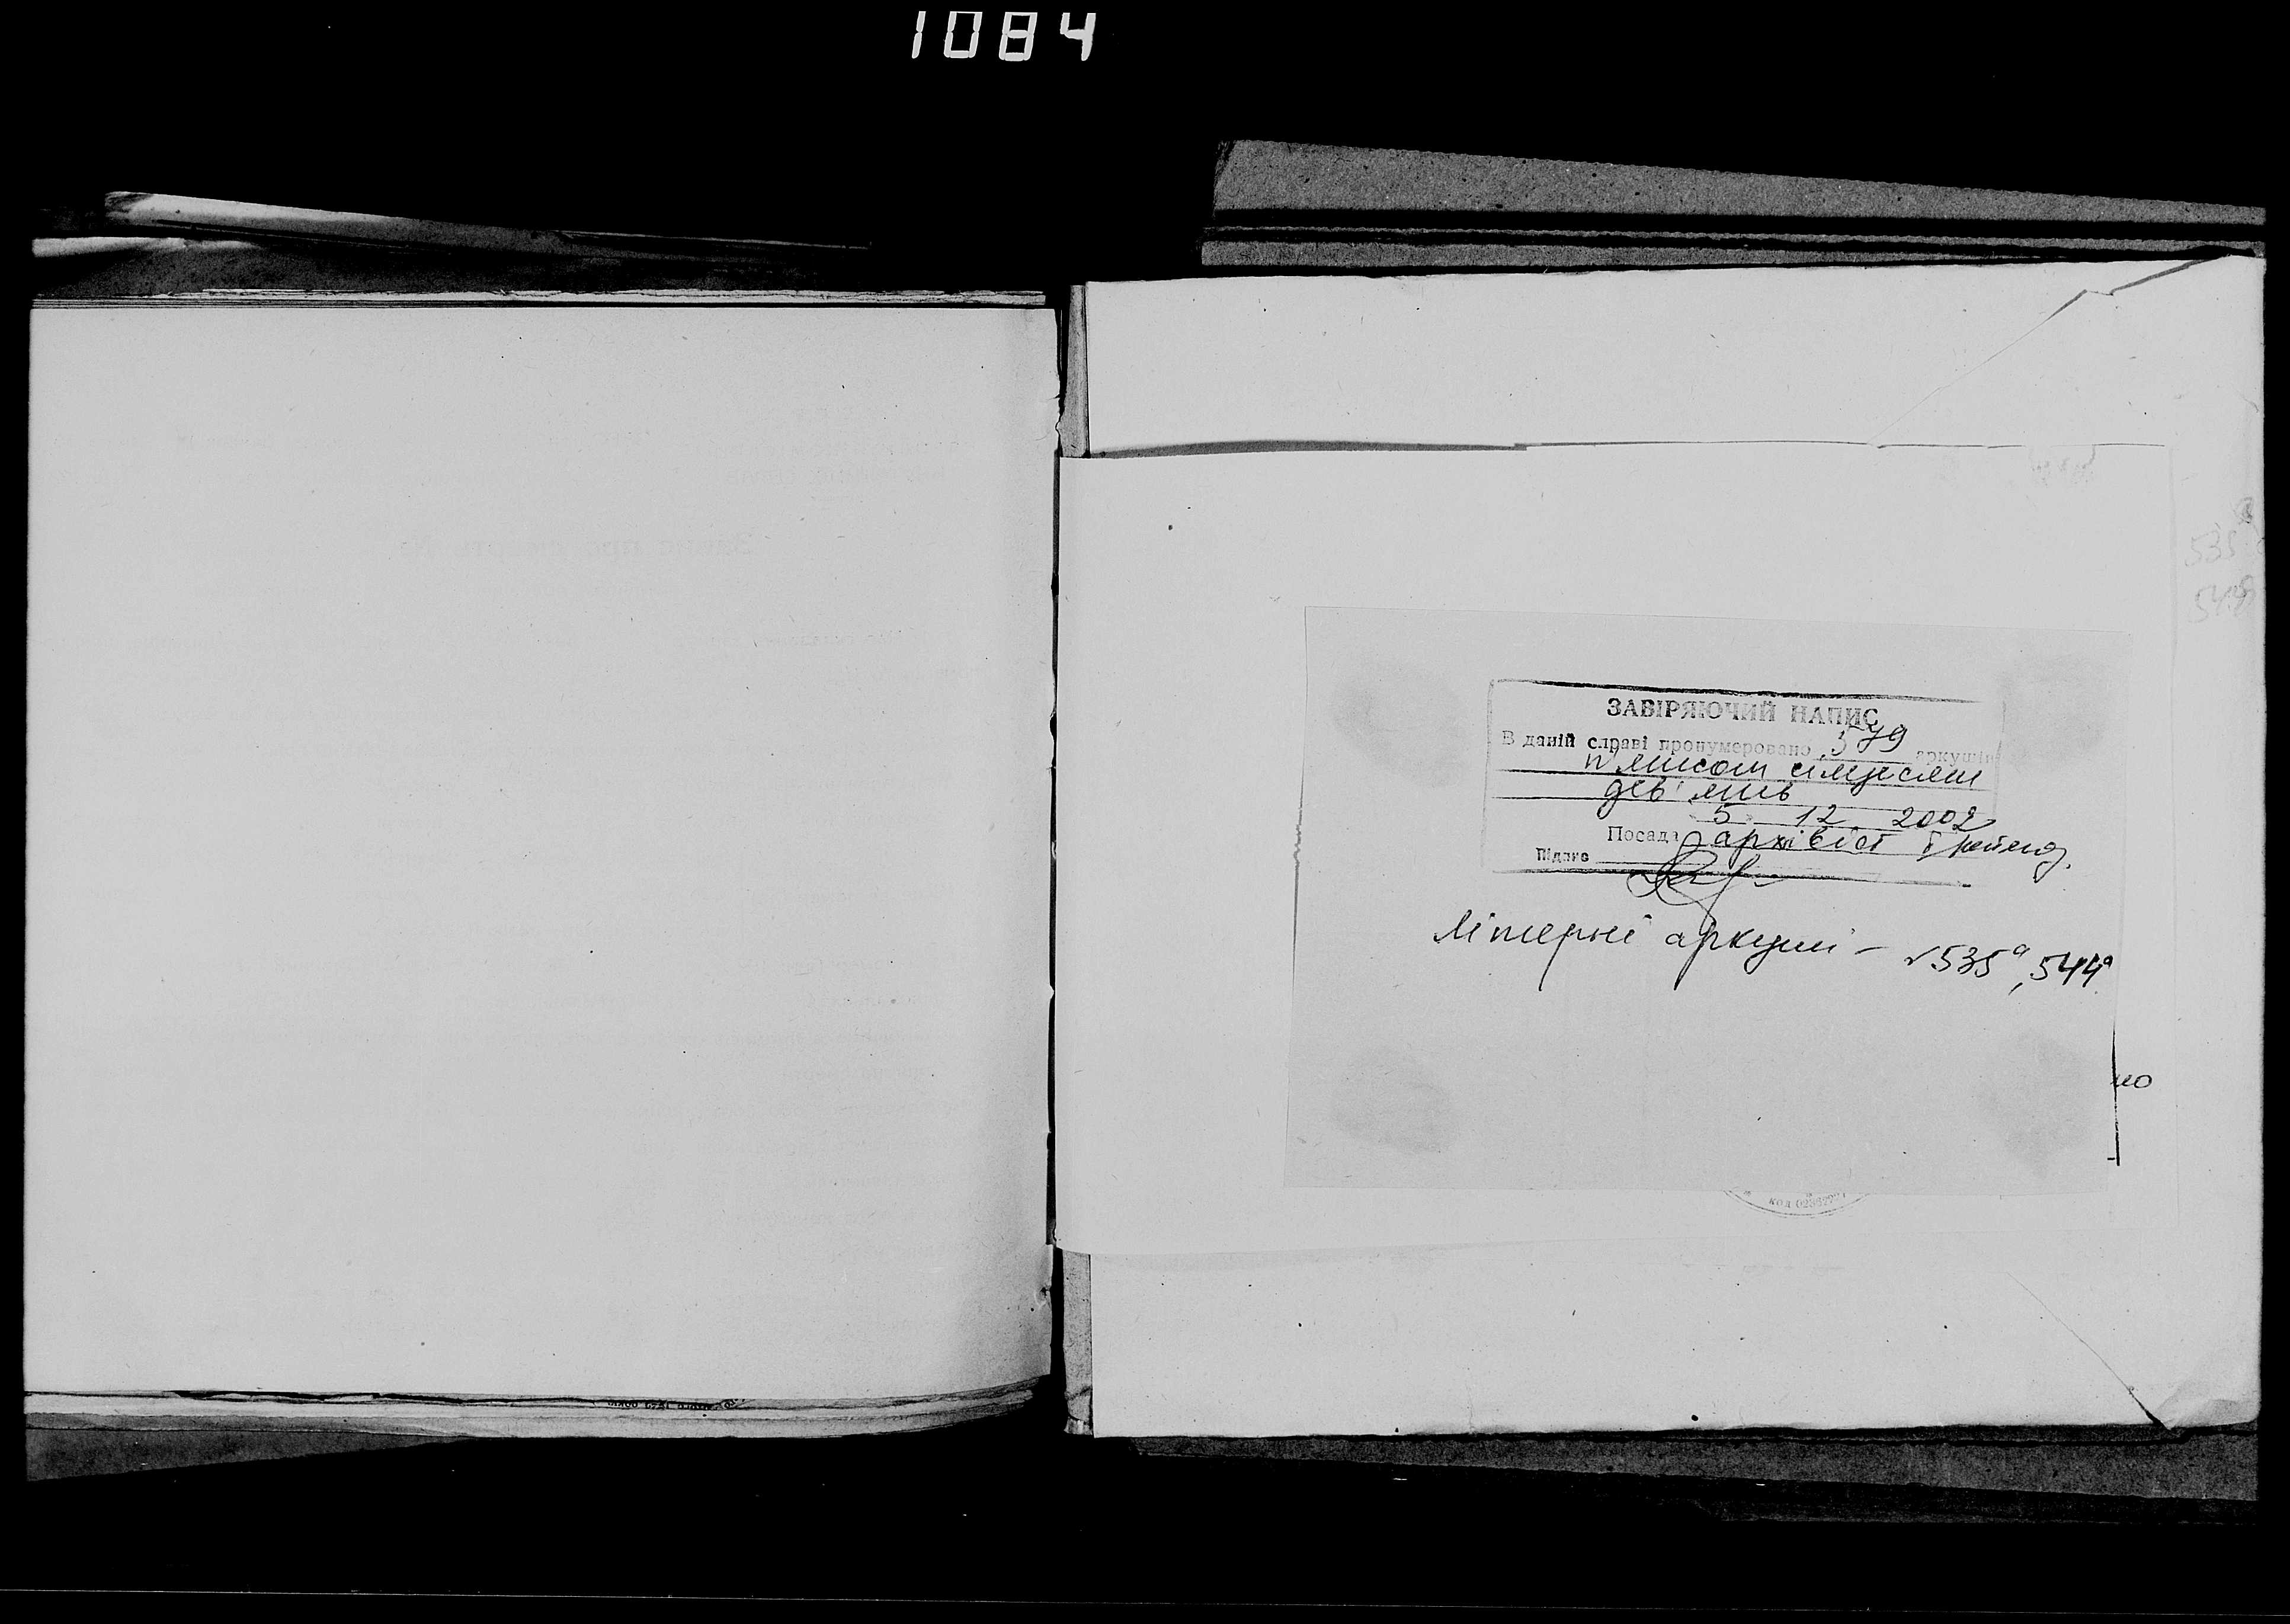 1084
535
544
ЗАВІРЯЮЧИЙ НАПИС
В даній справі пронумеровано 579 аркушів
п'ятсот сімдесят
дев'ять
5 12 2002
Посада архівіст І катег.
Підпис
Літерні аркуші – 535а, 544а
но
код